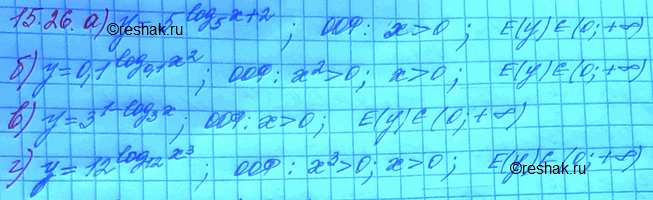 15.26. а) y = 5^{log_5 x+2} ; ООФ: x>0 ; E(y)∈(0;+∞)
б) y=0,1^{log_{0,1} x^2} ; ООФ: x^2>0; x>0 ; E(y)∈(0;+∞)
в) y=3^{1-log_3 x} ; ООФ: x>0; E(y)∈(0;+∞)
г) y=12^{log_{12} x^3} ; ООФ: x^3>0; x>0; E(y)∈(0;+∞)
©reshak.ru